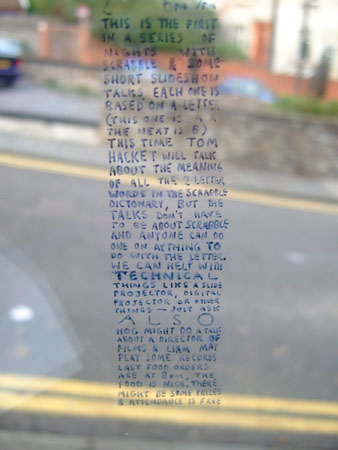 6PM 9PM
THIS IS THE FIRST
IN A SERIES OF
NIGHTS WITH
SCRABBLE & SOME
SHORT SLIDESHOW
TALKS. EACH ONE IS
BASED ON A LETTER
(THIS ONE IS A &
THE NEXT IS B)
THIS TIME TOM
HACKET WILL TALK
ABOUT THE MEANING
OF ALL THE 2 LETTER
WORDS IN THE SCRABBLE
DICTONARY, BUT THE
TALKS DON'T HAVE
TO BE ABOUT SCRABBLE
AND ANYONE CAN DO
ONE ON AYTHING TO
DO WITH THE LETTER.
WE CAN HELP WITH
TECHNICAL
THINGS LIKE A SLIDE
PROJECTOR, DIGITAL
PROJECTOR OR OTHER
THINGS - JUST ASK
ALSO
HOG MIGHT DO A TALK
ABOUT A DIRECTOR OF
FILMS & LIAM MAY
PLAY SOME RECORDS
LAST FOOD ORDERS
ARE AT 8PM, THE
FOOD IS NICE, THERE
MIGHT BE SOME PRIZES
& ATTENDANCE IS FREE